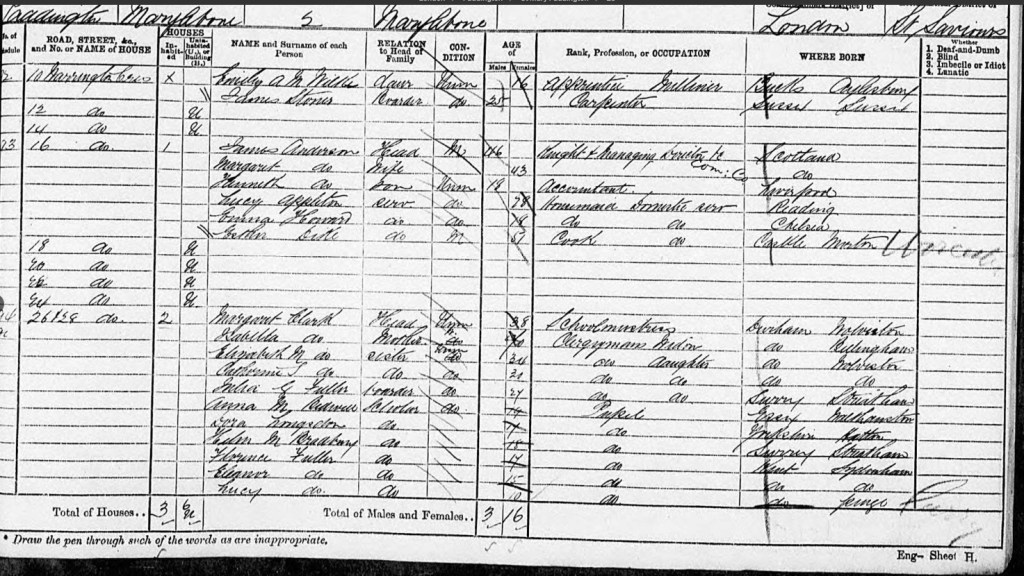 Paddington Marylebone 5 Marylebone London St Saviours
No. of Schedule
ROAD, STREET, &c., and No. or NAME of HOUSE
HOUSES
In-habit-ed
Unin-habited (U.), or Building (B.)
NAME and Surname of each Person
RELATION to Head of Family
CON-DITION
AGE of
Males Females
Rank, Profession, or OCCUPATION
WHERE BORN
Whether
1. Deaf-and-Dumb
2. Blind
3. Imbecile or Idiot
4. Lunatic
10 Warrington Cres X Emily A M Daur Unm 16 Apprentice Milliner Bucks Aylesbury
James Stoner Boarder do 25 Carpenter Sussex
12 do U
14 do U
93 16 do 1 James Anderson Head M 46 Knight & Managing Director Scotland
Com: Co
Margaret do Wife 43 do
Kenneth do Son Unm 18 Accountant Liverpool
Lucy Appleton Serv do 28 Housemaid Domestic Serv Reading
Emma Howard do do 18 do do Chelsea
Esther do M 51 Cook do Castle Morton
18 do U
20 do U
22 do U
24 do U
26 & 28 do 2 Margaret Clark Head Unm 38 Schoolmistress Durham Wolviston
Isabella do Mother Clergymans Widow do Billingham
Elizabeth M do Sister 34 do daughter do Wolviston
Catherine J do do do 31 do do do do
Julia G Fuller Boarder do 27 do do Surrey Streatham
Anna M Scholar do Pupil Essex Walthamstow
Dora Longsdon do do Yorkshire
Helen M Bradbury do 18 do Surrey Streatham
Florence Fuller do 17 do Kent Sydenham
Eleanor do do 15 do do do
Lucy do do 10 do do Penge
Total of Houses.. 3 6 U Total of Males and Females.. 3 16
* Draw the pen through such of the words as are inappropriate.
Eng- Sheet H.